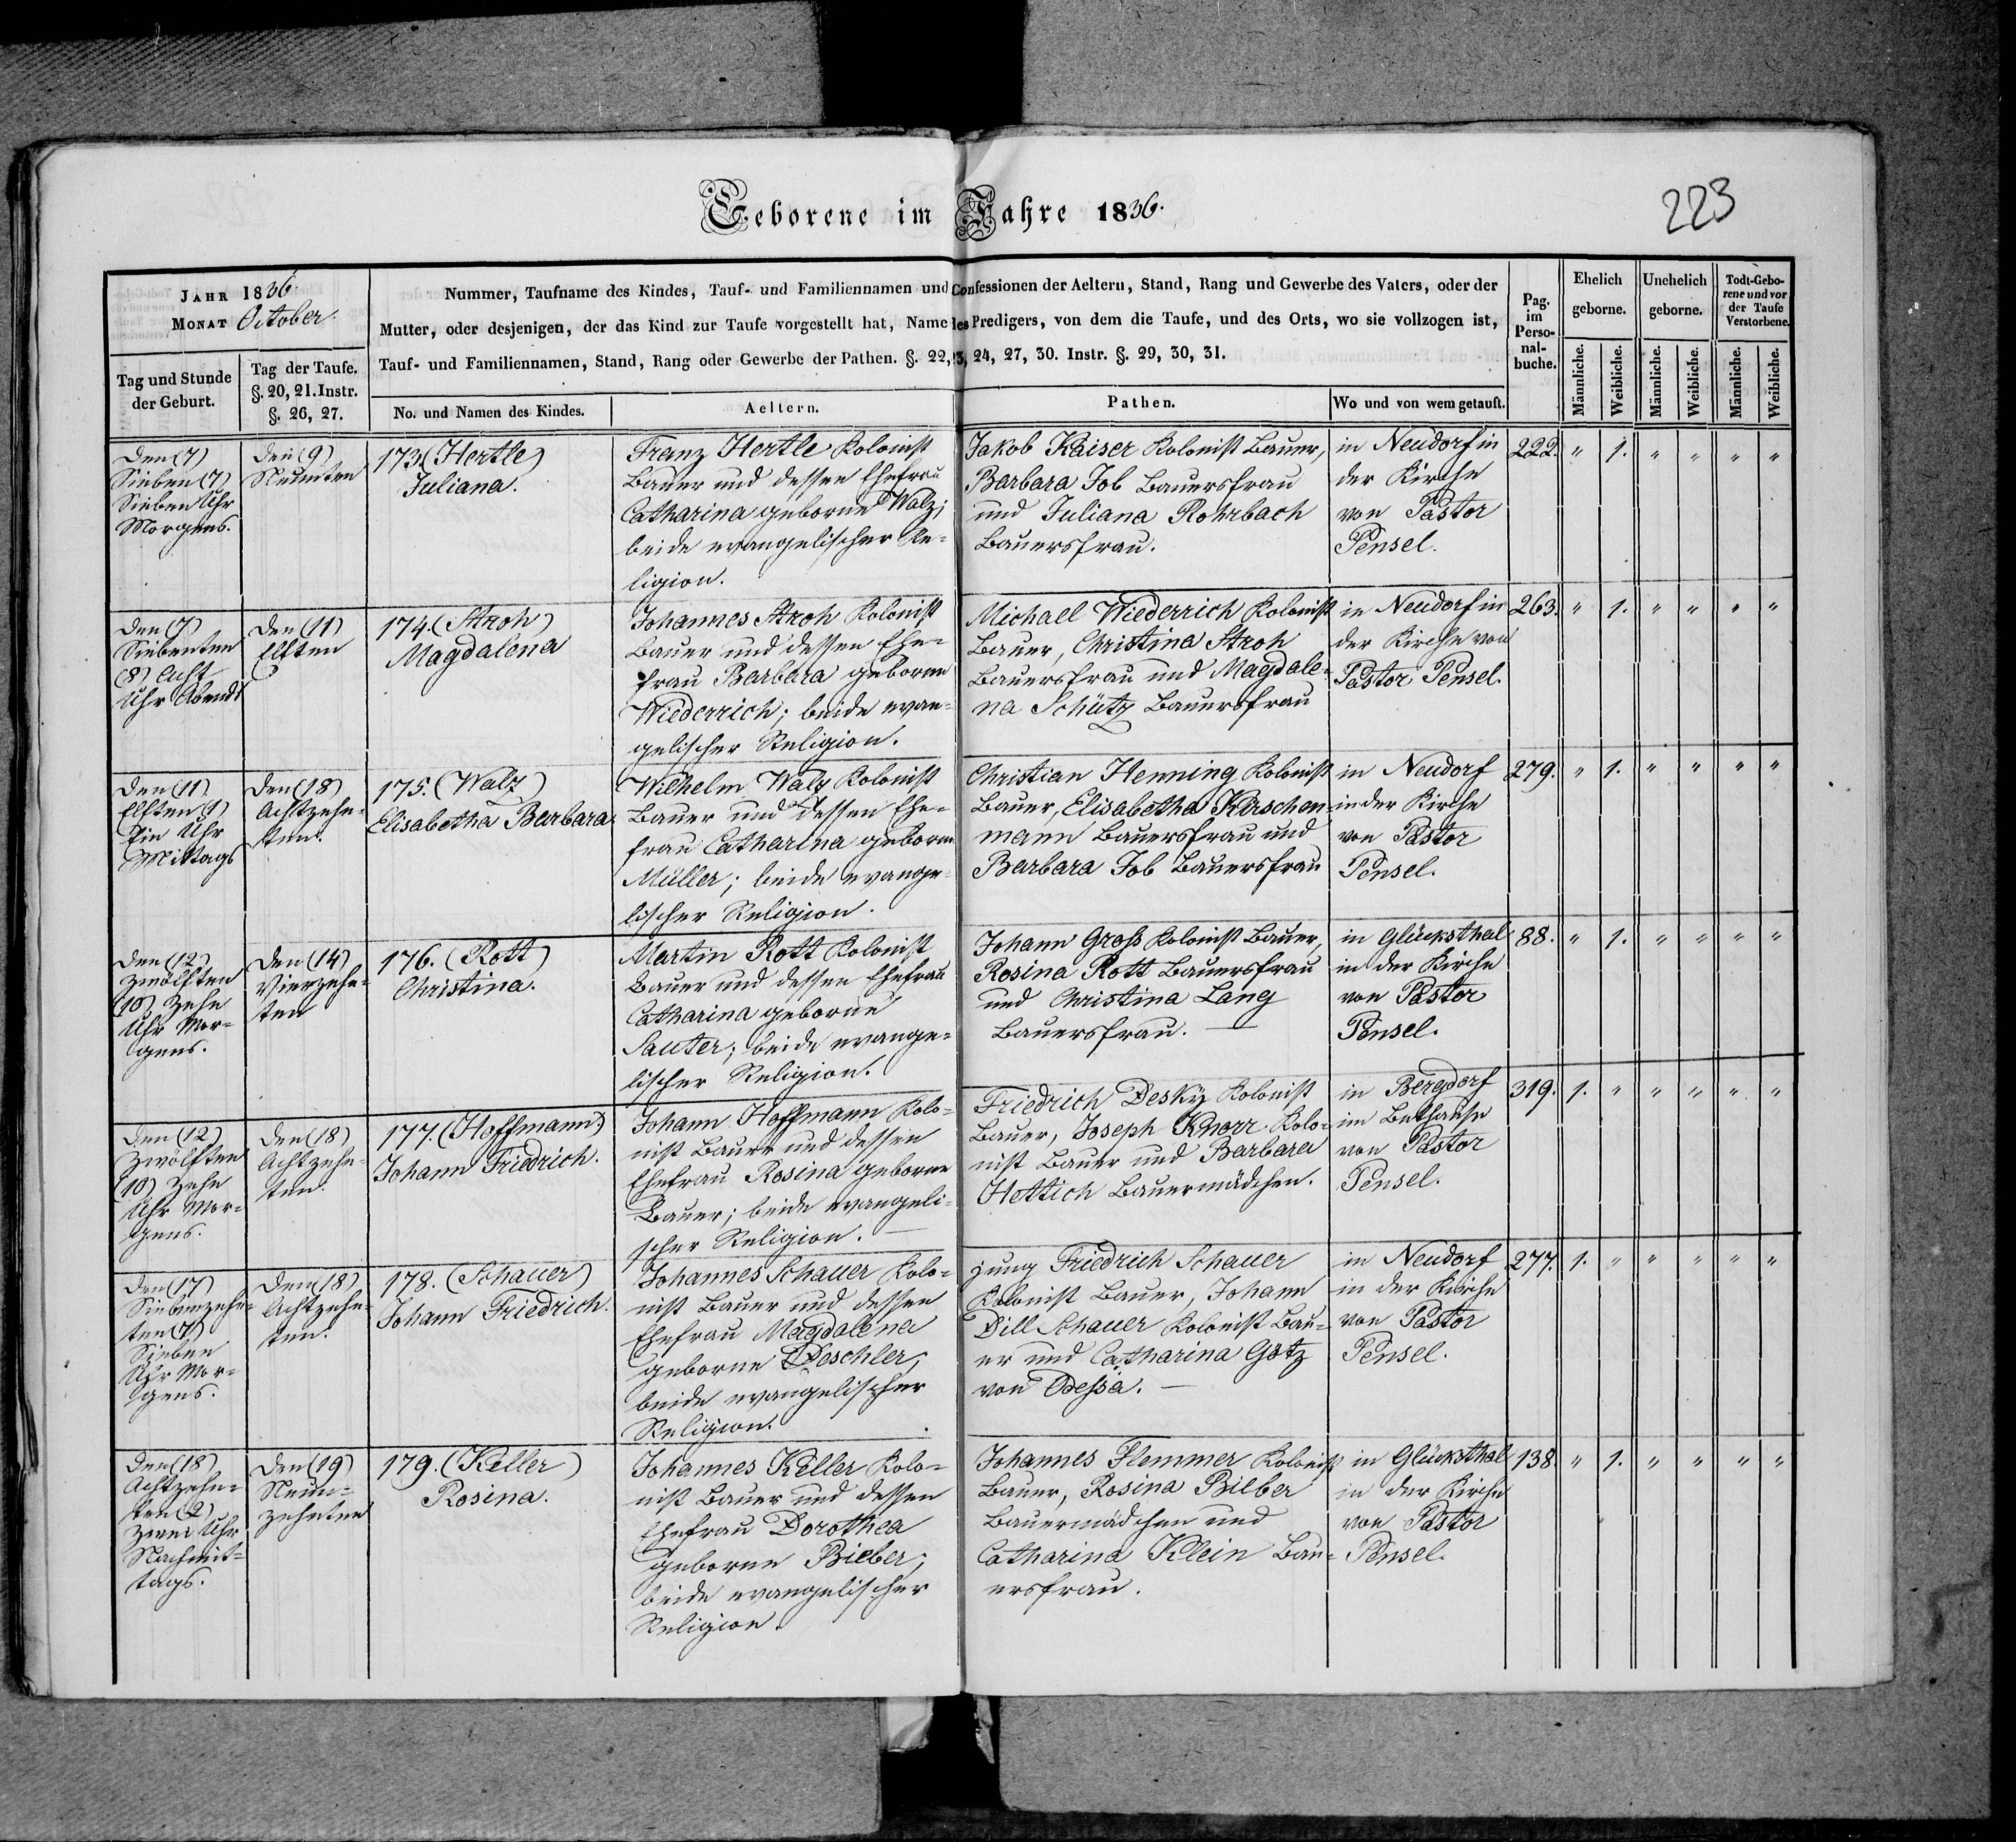 Geborene im Jahre 1836.
223
JAHR 1836.
MONAT October.
Tag und Stunde
der Geburt.
Tag der Taufe.
§. 20, 21. Instr.
§. 26, 27.
Nummer, Taufname des Kindes, Tauf- und Familiennamen und Confessionen der Aeltern, Stand, Rang und Gewerbe des Vaters, oder der
Mutter, oder desjenigen, der das Kind zur Taufe vorgestellt hat, Name des Predigers, von dem die Taufe, und des Orts, wo sie vollzogen ist,
Tauf- und Familiennamen, Stand, Rang oder Gewerbe der Pathen. §. 22, 23, 24, 27, 30. Instr. §. 29, 30, 31.
No. und Namen des Kindes.
Aeltern.
Pathen.
Wo und von wem getauft.
Pag.
im
Perso-
nal-
buche.
Ehelich
geborne.
Unehelich
geborne.
Todt-Gebo-
rene und vor
der Taufe
Verstorbene.
Männliche.
Weibliche.
Männliche.
Weibliche.
Männliche.
Weibliche.
Den (7)
Sieben (7)
Sieben Uhr
Morgens.
Den (9)
Neunten
173. (Hertle)
Juliana.
Franz Hertle Kolonist
Bauer und dessen Ehefrau
Catharina geborne Walz;
beide evangelischer Re-
ligion.
Jakob Kaiser Kolonist Bauer,
Barbara Job Bauersfrau
und Juliana Rohrbach
Bauersfrau.
in Neudorf in
der Kirche
von Pastor
Pensel.
222. " 1. " " " "
Den (7)
Siebenten
(8) Acht
Uhr Abends
Den (11)
Elften
174. (Stroh)
Magdalena
Johannes Stroh Kolonist
Bauer und dessen Ehe-
frau Barbara geborne
Wiederrich; beide evan-
gelischer Religion.
Michael Wiederrich Kolonist
Bauer, Christina Stroh
Bauersfrau und Magdale-
na Schütz Bauersfrau
in Neudorf in
der Kirche von
Pastor Pensel.
263. " 1. " " " "
Den (11)
Elften (1)
Ein Uhr
Mittags
Den (18)
Achtzehn-
ten.
175. (Walz)
Elisabetha Barbara
Wilhelm Walz Kolonist
Bauer und dessen Ehe-
frau Catharina geborne
Müller; beide evange-
lischer Religion.
Christian Henning Kolonist
Bauer, Elisabetha Kirschen-
mann Bauersfrau und
Barbara Job Bauersfrau
in Neudorf
in der Kirche
von Pastor
Pensel.
279. " 1. " " " "
Den (12)
Zwölften
(10) Zehn
Uhr Mor-
gens.
Den (14)
Vierzehn-
ten
176. (Rott)
Christina.
Martin Rott Kolonist
Bauer und dessen Ehefrau
Catharina geborne
Sauter; beide evange-
lischer Religion.
Johann Groß Kolonist Bauer,
Rosina Rott Bauersfrau
und Christina Lang
Bauersfrau. —
in Glücksthal
in der Kirche
von Pastor
Pensel.
88. " 1. " " " "
Den (12)
Zwölften
(10) Zehn
Uhr Mor-
gens.
Den (18)
Achtzehn-
ten.
177. (Hoffmann)
Johann Friedrich.
Johann Hoffmann Kolo-
nist Bauer und dessen
Ehefrau Rosina geborne
Bauer; beide evangeli-
scher Religion. —
Friedrich Desky Kolonist
Bauer, Joseph Knorr Kolo-
nist Bauer und Barbara
Hettich Bauermädchen.
in Bergdorf
im Bethause
von Pastor
Pensel.
319. 1. " " " " "
Den (17)
Siebenzehn-
ten (7)
Sieben
Uhr Mor-
gens.
Den (18)
Achtzehn-
ten.
178. (Schauer)
Johann Friedrich.
Johannes Schauer Kolo-
nist Bauer und dessen
Ehefrau Magdalena
geborne Deschler;
beide evangelischer
Religion.
jung Friedrich Schauer
Kolonist Bauer, Johann
Dill Schauer Kolonist Bau-
er und Catharina Götz
von Odessa. —
in Neudorf
in der Kirche
von Pastor
Pensel.
277. 1. " " " " "
Den (18)
Achtzehn-
ten (2)
Zwei Uhr
Nachmit-
tags.
Den (19)
Neun-
zehnten
179. (Keller)
Rosina.
Johannes Keller Kolo-
nist Bauer und dessen
Ehefrau Dorothea
geborne Bieber;
beide evangelischer
Religion
Johannes Flemmer Kolonist
Bauer, Rosina Bieber
Bauermädchen und
Catharina Klein Bau-
ersfrau.
in Glücksthal
in der Kirche
von Pastor
Pensel.
138. " 1. " " " "